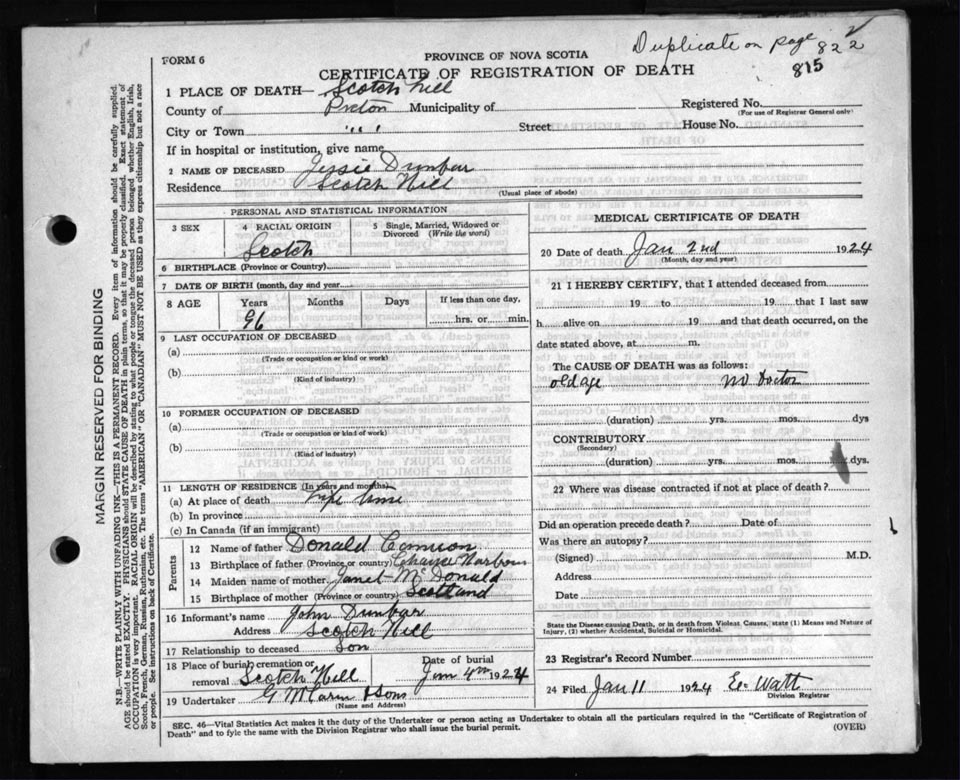 Duplicate on page 822
815
FORM 6
PROVINCE OF NOVA SCOTIA
CERTIFICATE OF REGISTRATION OF DEATH
1 PLACE OF DEATH— Scotch Hill
County of Picton Municipality of
Registered No.
(For use of Registrar General only)
City or Town " " Street House No.
If in hospital or institution, give name
2 NAME OF DECEASED Jessie Dunbar
Residence Scotch Hill
(Usual place of abode)
PERSONAL AND STATISTICAL INFORMATION
3 SEX
4 RACIAL ORIGIN
Scotch
5 Single, Married, Widowed or Divorced (Write the word)
6 BIRTHPLACE (Province or Country)
7 DATE OF BIRTH (month, day and year)
8 AGE Years Months Days If less than one day,
96 hrs. or min.
9 LAST OCCUPATION OF DECEASED
(a)
(Trade or occupation or kind or work)
(b)
(Kind of industry)
10 FORMER OCCUPATION OF DECEASED
(a)
(Trade or occupation or kind of work)
(b)
(Kind of industry)
11 LENGTH OF RESIDENCE (In years and months)
(a) At place of death Life time
(b) In province
(c) In Canada (if an immigrant)
Parents
12 Name of father Donald Camron
13 Birthplace of father (Province or country) Harbour
14 Maiden name of mother Janet McDonald
15 Birthplace of mother (Province or country) Scotland
16 Informant's name John Dunbar
Address Scotch Hill
17 Relationship to deceased Son
18 Place of burial, cremation or removal Scotch Hill
Date of burial
Jan 4th 1924
19 Undertaker & Sons
(Name and Address)
MEDICAL CERTIFICATE OF DEATH
20 Date of death Jan 2nd 1924
(Month, day and year)
21 I HEREBY CERTIFY, that I attended deceased from
19 to 19 that I last saw
h alive on 19 and that death occurred, on the
date stated above, at m.
The CAUSE OF DEATH was as follows:
old age no Doctor
(duration) yrs. mos. dys
CONTRIBUTORY
(Secondary)
(duration) yrs. mos. dys.
22 Where was disease contracted if not at place of death?
Did an operation precede death? Date of
Was there an autopsy?
(Signed) M.D.
Address
Date
State the Disease causing Death, or in death from Violent Causes, state (1) Means and Nature of
Injury, (2) whether Accidental, Suicidal or Homicidal.
23 Registrar's Record Number
24 Filed Jan 11 1924 E. Watt
Division Registrar
SEC. 46—Vital Statistics Act makes it the duty of the Undertaker or person acting as Undertaker to obtain all the particulars required in the "Certificate of Registration of
Death" and to fyle the same with the Division Registrar who shall issue the burial permit.
(OVER)
MARGIN RESERVED FOR BINDING
N.B.—WRITE PLAINLY WITH UNFADING INK—THIS IS A PERMANENT RECORD. Every item of information should be carefully supplied.
AGE should be stated EXACTLY. PHYSICIANS should STATE CAUSE OF DEATH in plain terms, so that it may be properly classified. Exact statement of
OCCUPATION is very important. RACIAL ORIGIN will be described by stating to what people or tongue the deceased person belonged whether English, Irish,
Scotch, French, German, Russian, Ruthenian, etc. The terms "AMERICAN" OR "CANADIAN" MUST NOT BE USED as they express citizenship but not a race
or people. See instructions on back of Certificate.